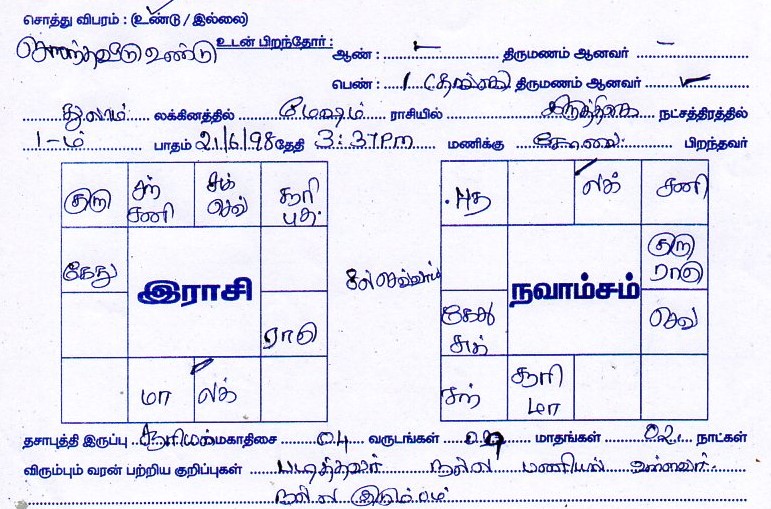 சொத்து விபரம் : (உண்டு / இல்லை)
சொந்தவீடு உண்டு உடன் பிறந்தோர் : ஆண் : – திருமணம் ஆனவர் –
பெண் : 1 திருமணம் ஆனவர் ✓
துலாம் லக்கினத்தில் மேஷம் ராசியில் கிருத்திகை நட்சத்திரத்தில்
1-ம் பாதம் 21/6/98 தேதி 3:37 Pm மணிக்கு கோவை பிறந்தவர்
குரு சந் சனி சுக் செவ் சூரி புத
கேது
இராசி
ராகு
மா லக்
8ல் செவ்வாய்
புத லக் சனி
குரு ராகு
நவாம்சம்
கேது சுக்
செவ்
சந் சூரி மா
தசாபுத்தி இருப்பு சூரியன் மகாதிசை 04 வருடங்கள் மாதங்கள் 02 நாட்கள்
விரும்பும் வரன் பற்றிய குறிப்புகள் படித்தவர் நல்ல பணியில் உள்ளவர்
நல்ல குடும்பம்